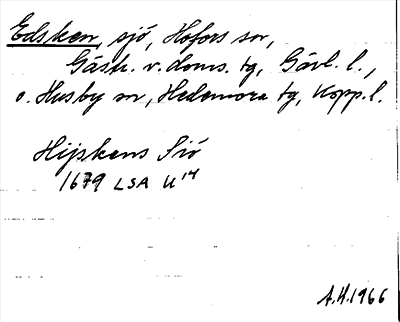 Edsken, sjö, Hofors sn,
Gästr. v. doms. tg, Gävl. l.,
o. Husby sn, Hedemora tg, Kopp. l.
Hijskens Siö
1679 LSA U 14
A.H. 1966